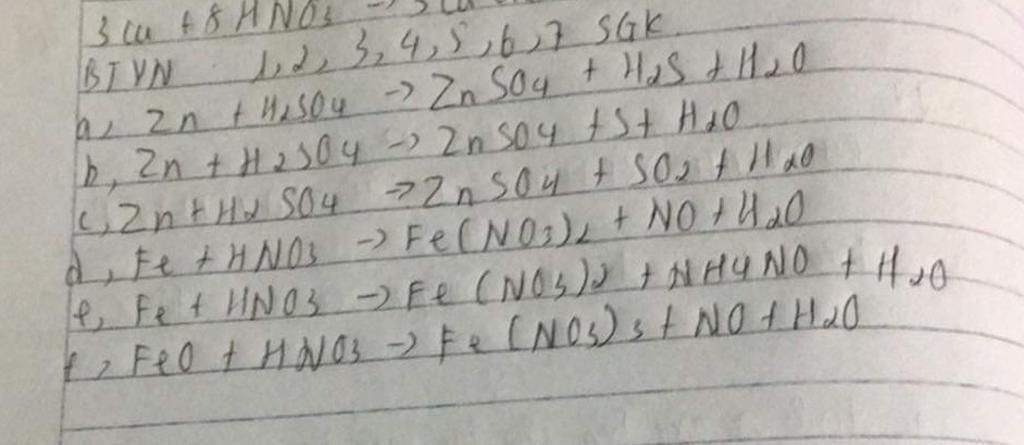 3 Cu + 8 HNO3 -> 3 Cu
BTVN 1,2, 3,4,5,6,7 SGK.
a, Zn + H2SO4 -> ZnSO4 + H2S + H2O
b, Zn + H2SO4 -> ZnSO4 + S + H2O
c, Zn + H2SO4 -> ZnSO4 + SO2 + H2O
d, Fe + HNO3 -> Fe(NO3)2 + NO + H2O
e, Fe + HNO3 -> Fe(NO3)2 + NH4NO + H2O
f, FeO + HNO3 -> Fe(NO3)3 + NO + H2O